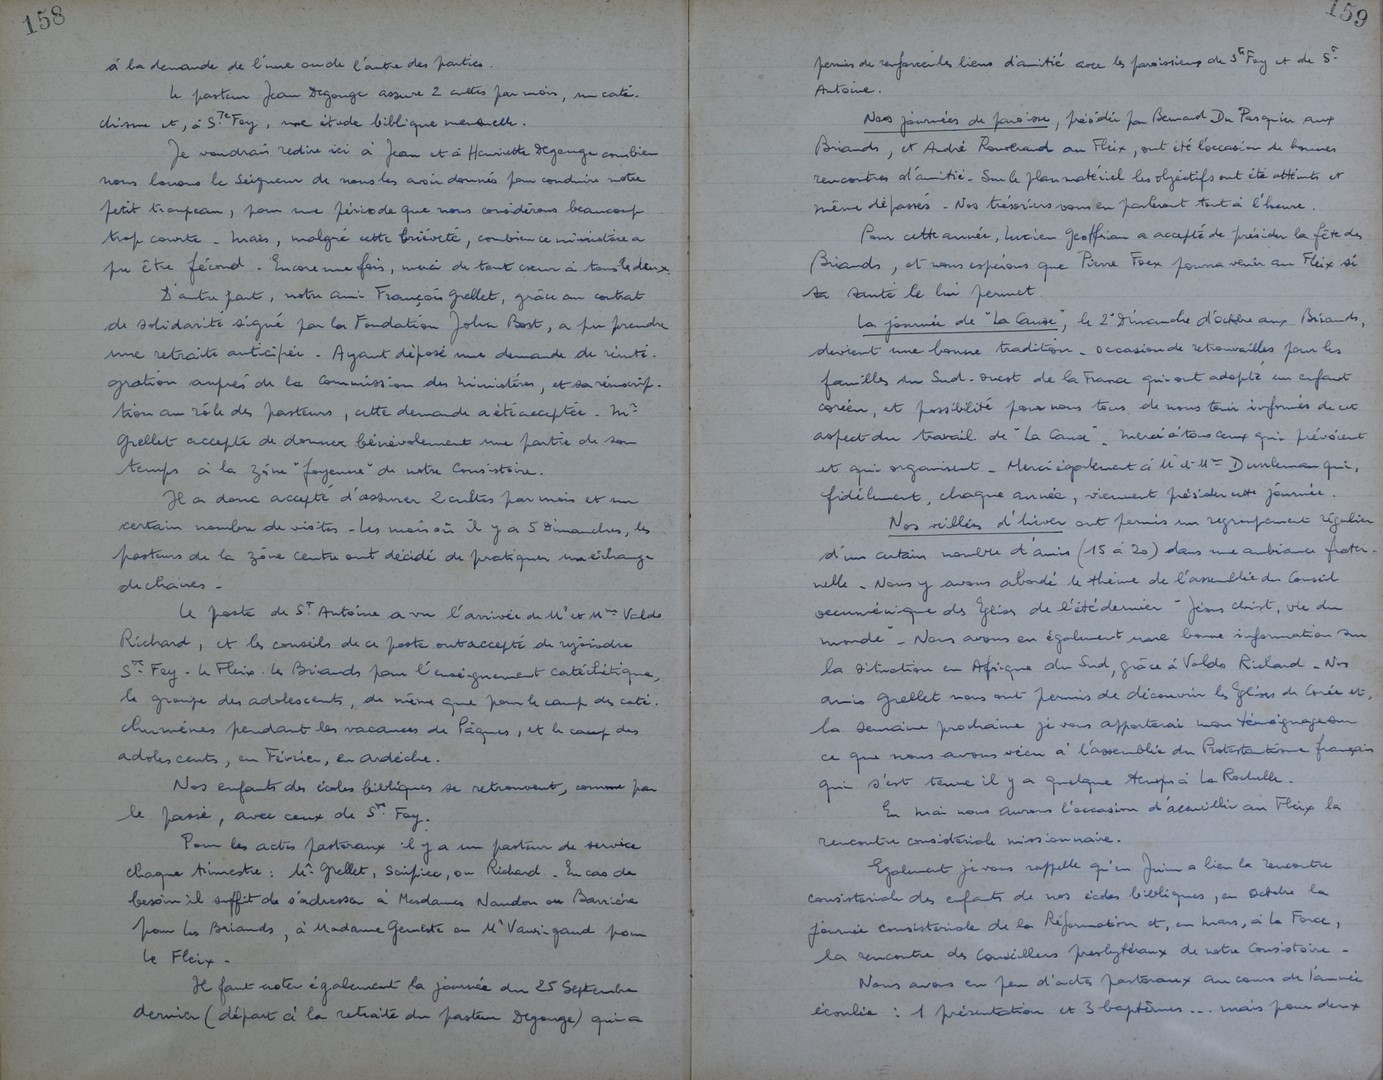 158
à la demande de l'une ou de l'autre des parties.
Le pasteur Jean Degouge assure 2 cultes par mois, un caté-
chisme et, à Ste Foy, une étude biblique mensuelle.
Je voudrais redire ici à Jean et à Henriette Degouge combien
nous louons le Seigneur de nous les avoir donnés pour conduire notre
petit troupeau, pour une période que nous considérons beaucoup
trop courte - mais, malgré cette brièveté, combien ce ministère a
pu être fécond. Encore une fois, merci de tout cœur à tous les deux.
D'autre part, notre ami François Grellet, grâce au contrat
de solidarité signé par la Fondation John Bost, a pu prendre
une retraite anticipée - Ayant déposé une demande de réinté-
gration auprès de la Commission des Ministères, et sa réinscrip-
tion au rôle des pasteurs, cette demande a été acceptée. Mr
Grellet accepte de donner bénévolement une partie de son
temps à la zône "foyenne" de notre Consistoire.
Il a donc accepté d'assurer 2 cultes par mois et un
certain nombre de visites - Les mois où il y a 5 Dimanches, les
pasteurs de la zône centre ont décidé de pratiquer un échange
de chaires -
Le poste de St Antoine a vu l'arrivée de Mr et Mme Valdo
Richard, et les conseils de ce poste ont accepté de rejoindre
Ste Foy - Le Fleix - Les Briands pour l'enseignement catéchétique,
le groupe des adolescents, de même que pour le camp des caté-
chumènes pendant les vacances de Pâques, et le camp des
adolescents, en Février, en Ardèche.
Nos enfants des écoles bibliques se retrouvent, comme par
le passé, avec ceux de Ste Foy.
Pour les actes pastoraux il y a un pasteur de service
chaque trimestre : Mr Grellet, ou Richard - En cas de
besoin il suffit de s'adresser à Mesdames Naudon ou Barrière
pour les Briands, à Madame Geneste ou Mr Vaurigaud pour
Le Fleix -
Il faut noter également la journée du 25 Septembre
dernier (départ à la retraite du pasteur Degouge) qui a
159
permis de renforcer les liens d'amitié avec les paroissiens de Ste Foy et de St
Antoine.
Nos journées de paroisse, présidées par Bernard Du Pasquier aux
Briands, et André au Fleix, ont été l'occasion de bonnes
rencontres d'amitié - Sur le plan matériel les objectifs ont été atteints et
même dépassés - Nos trésoriers vous en parleront tout à l'heure.
Pour cette année, Lucien Geoffrian a accepté de présider la fête des
Briands, et nous espérons que Pierre Foex pourra venir au Fleix si
sa santé le lui permet.
La journée de "La Cause", le 2e Dimanche d'octobre aux Briands,
devient une bonne tradition - occasion de retrouvailles pour les
familles du Sud-Ouest de la France qui ont adopté un enfant
coréen, et possibilité pour nous tous, de nous tenir informés de cet
aspect du travail de "La Cause" - merci à tous ceux qui prévoient
et qui organisent - Merci également à Mr et Mme qui,
fidèlement, chaque année, viennent présider cette journée.
Nos veillées d'hiver ont permis un regroupement régulier
d'un certain nombre d'amis (15 à 20) dans une ambiance frater-
nelle - Nous y avons abordé le thème de l'assemblée du Conseil
oecuménique des Eglises de l'été dernier "Jésus Christ, vie du
monde" - Nous avons eu également une bonne information sur
la situation en Afrique du Sud, grâce à Valdo Richard - Nos
amis Grellet nous ont permis de découvrir les Eglises de Corée et,
la semaine prochaine je vous apporterai mon témoignage sur
ce que nous avons vécu à l'assemblée du Protestantisme français
qui s'est tenue il y a quelque temps à La Rochelle.
En mai nous aurons l'occasion d'accueillir au Fleix la
rencontre consistoriale missionnaire.
Egalement je vous rappelle qu'en Juin a lieu la rencontre
consistoriale des enfants de nos écoles bibliques, en octobre la
journée consistoriale de la Réformation et, en mars, à La Force,
la rencontre des Conseillers presbytéraux de notre Consistoire -
Nous avons eu peu d'actes pastoraux au cours de l'année
écoulée : 1 présentation et 3 baptêmes ... mais pour deux